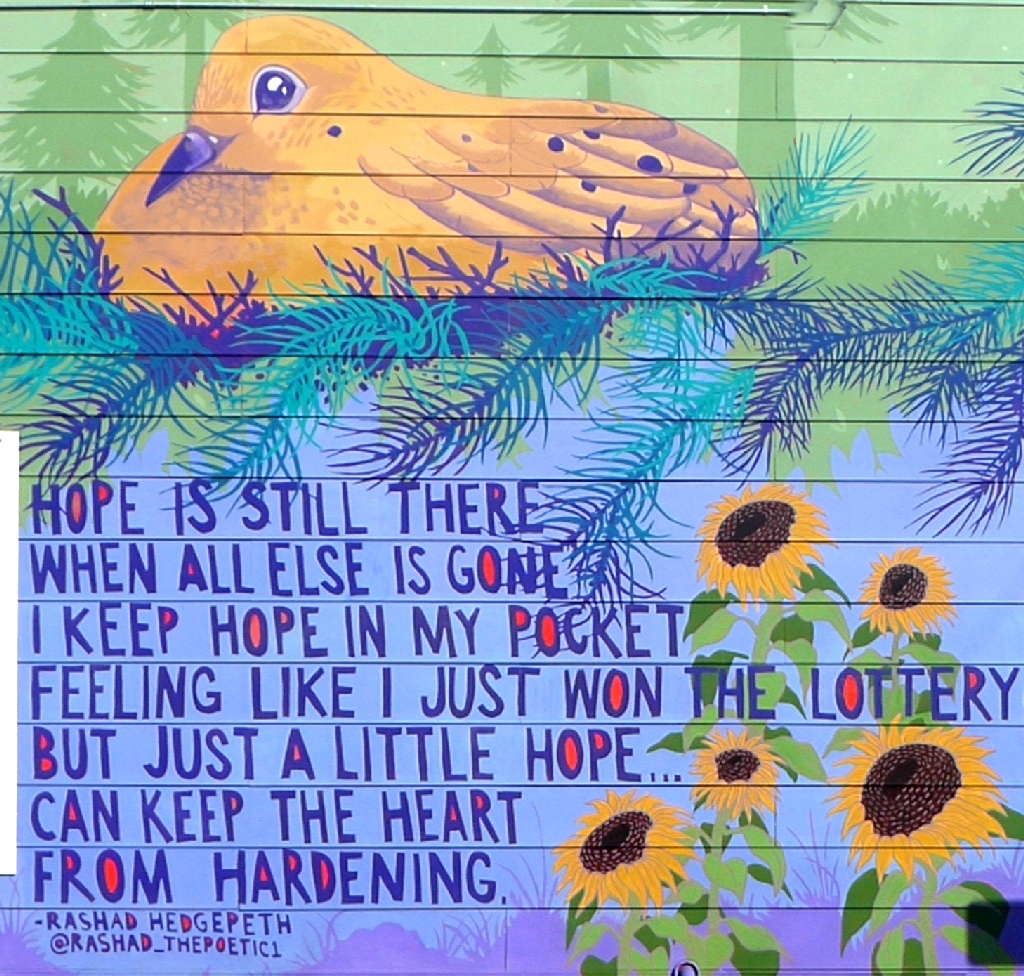 HOPE IS STILL THERE
WHEN ALL ELSE IS GONE
I KEEP HOPE IN MY POCKET
FEELING LIKE I JUST WON THE LOTTERY
BUT JUST A LITTLE HOPE...
CAN KEEP THE HEART
FROM HARDENING.
-RASHAD HEDGEPETH
@RASHAD_THEPOETIC1